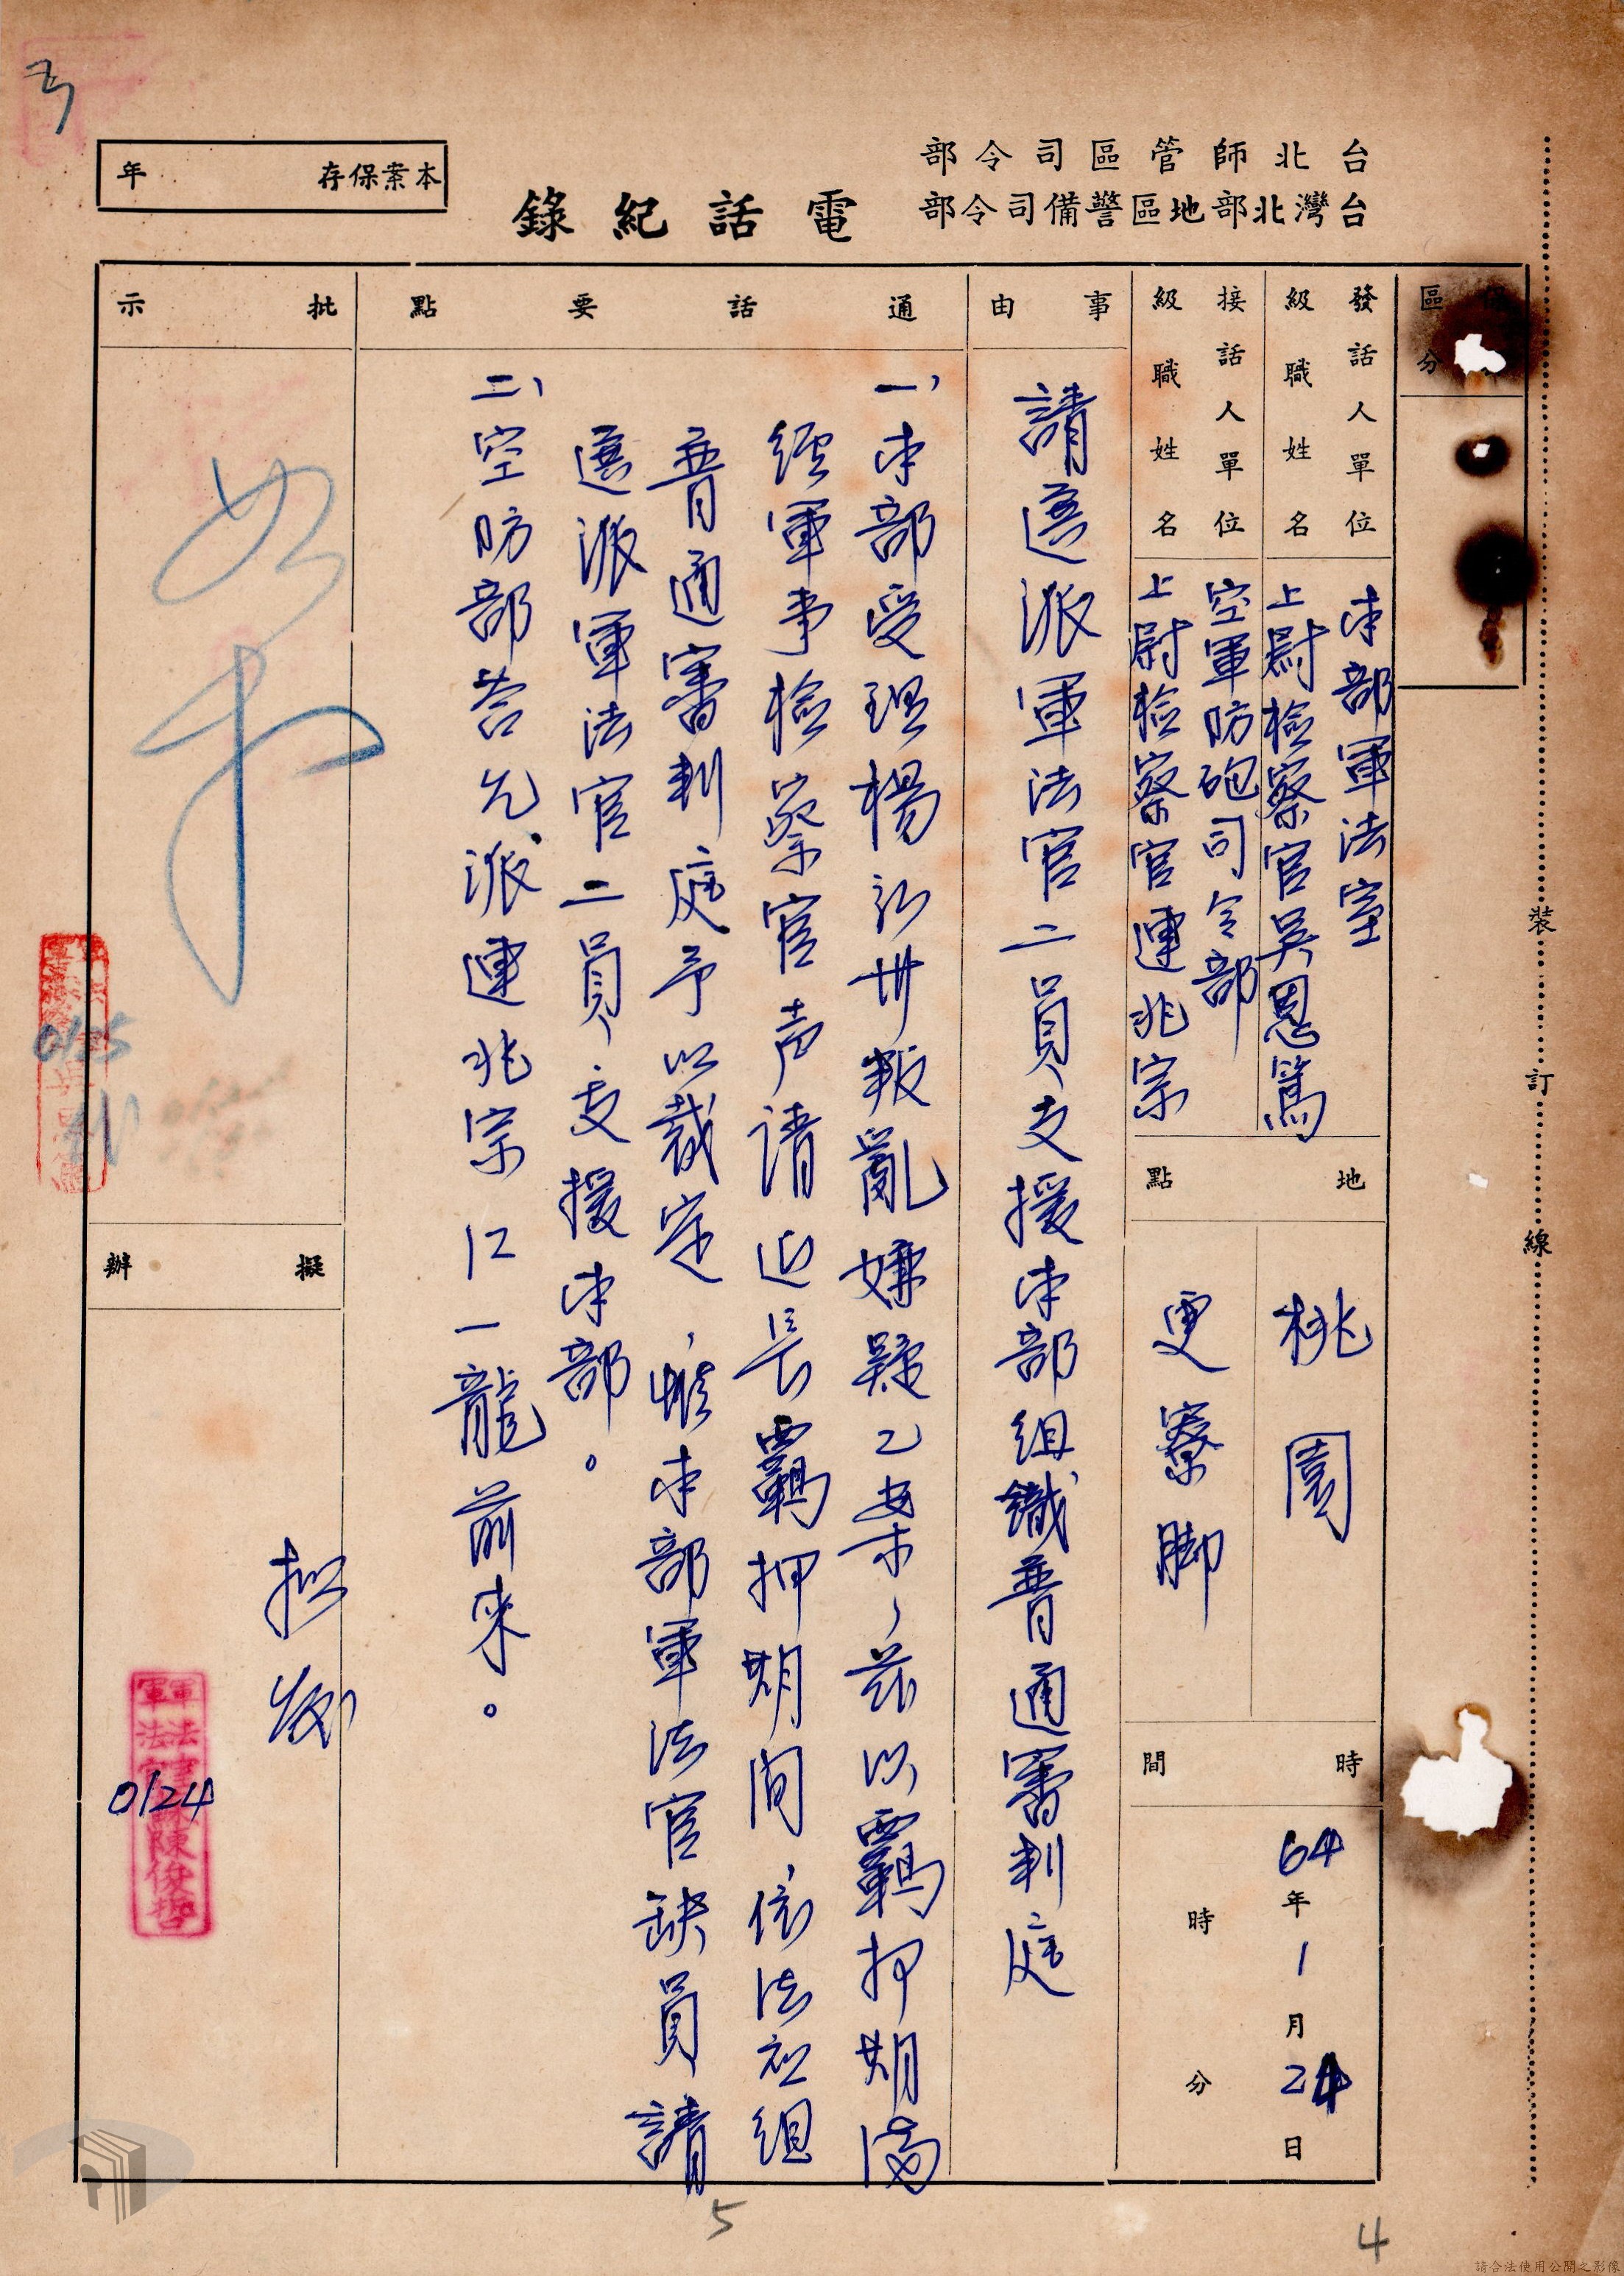 台北師管區司令部
台灣北部地區警備司令部
電話紀錄
本案保存 年
區分
發話人單位
級職姓名
本部軍法室
上尉檢察官吳恩篤
接話人單位
級職姓名
空軍防砲司令部
上尉檢察官連兆宗
地點
桃園
更寮腳
時間
64年1月24日
時 分
事由
請遴派軍法官二員支援本部組織普通審判庭
通話要點
一、本部受理楊 叛亂嫌疑乙案、茲以羈押期滿
經軍事檢察官声請延長羈押期間,依法組
普通審判庭予以裁定,惟本部軍法官缺員請
遴派軍法官二員、支援本部。
二、空防部答允派連兆宗 江一龍前來。
批示
如
0125
擬辦
擬
0124
軍法官
陳俊哲
裝訂線
5
4
請合法使用公開之影像